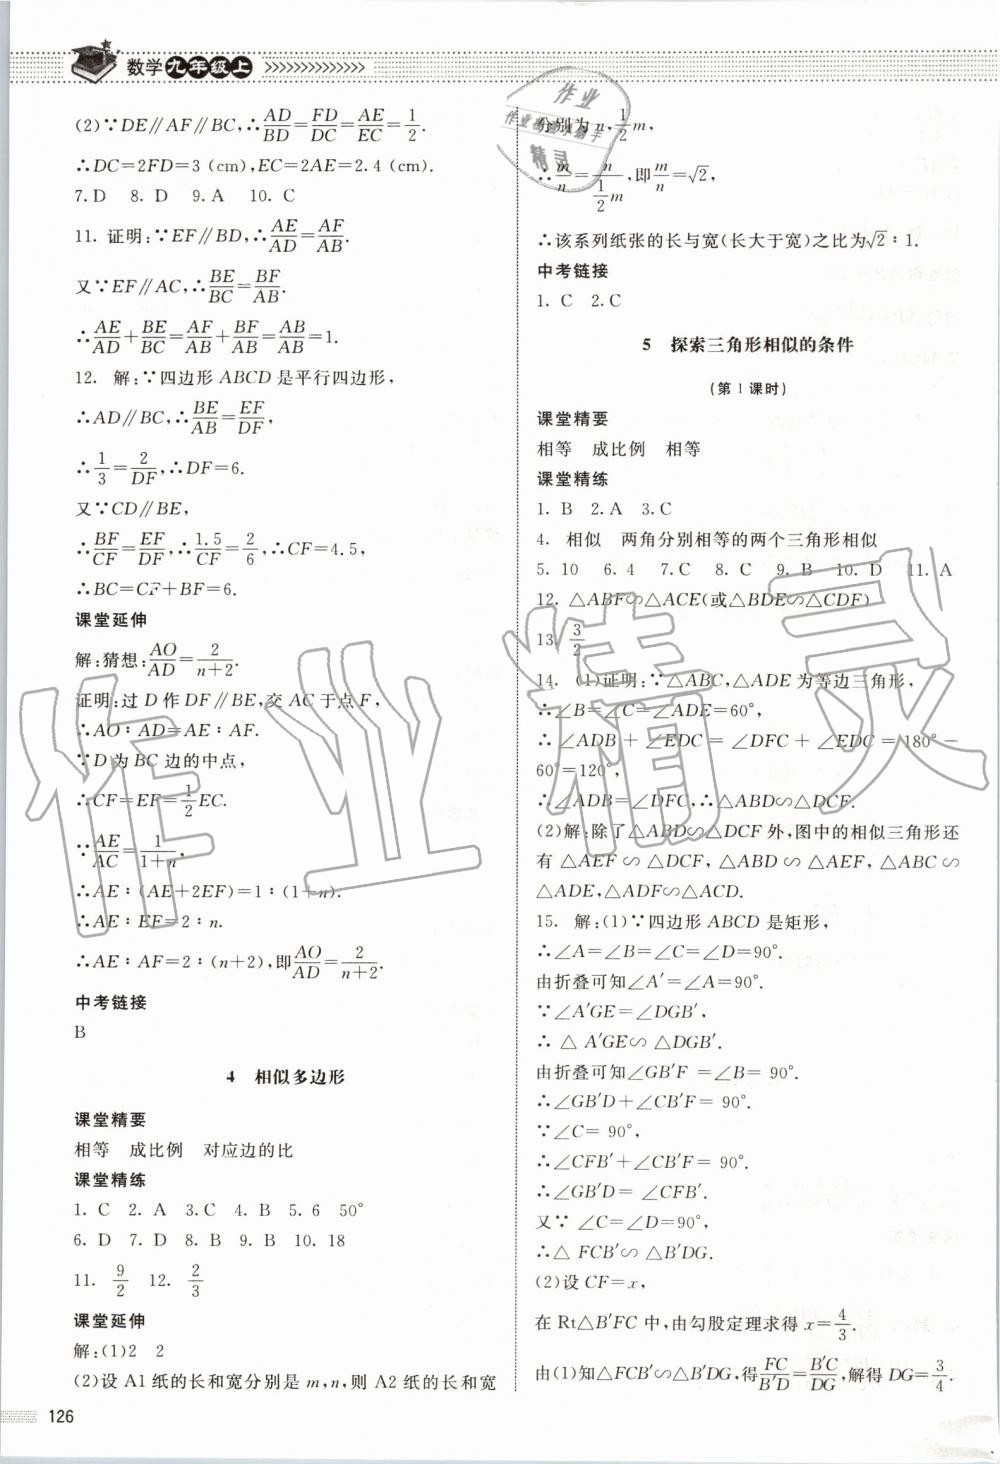 数学九年级上
(2)∵DE∥AF∥BC,∴AD/BD=FD/DC=AE/EC=1/2.
∴DC=2FD=3(cm),EC=2AE=2.4(cm).
7.D 8.D 9.A 10.C
11. 证明:∵EF∥BD,∴AE/AD=AF/AB.
又∵EF∥AC,∴BE/BC=BF/AB.
∴AE/AD+BE/BC=AF/AB+BF/AB=AB/AB=1.
12. 解:∵四边形ABCD是平行四边形,
∴AD∥BC,∴BE/AB=EF/DF,
∴1/3=2/DF,∴DF=6.
又∵CD∥BE,
∴BF/CF=EF/DF,∴1.5/CF=2/6,∴CF=4.5,
∴BC=CF+BF=6.
课堂延伸
解:猜想:AO/AD=2/(n+2).
证明:过D作DF∥BE,交AC于点F,
∴AO:AD=AE:AF.
∵D为BC边的中点,
∴CF=EF=1/2EC.
∵AE/AC=1/(1+n).
∴AE:(AE+2EF)=1:(1+n).
∴AE:EF=2:n.
∴AE:AF=2:(n+2),即AO/AD=2/(n+2).
中考链接
B
4 相似多边形
课堂精要
相等 成比例 对应边的比
课堂精练
1.C 2.A 3.C 4.B 5.6 50°
6.D 7.D 8.B 9.B 10.18
11. 9/2 12. 2/3
课堂延伸
解:(1)2 2
(2)设A1纸的长和宽分别是m,n,则A2纸的长和宽
126
分别为n,1/2m,
∴m/n=n/(1/2m),即m/n=√2,
∴该系列纸张的长与宽(长大于宽)之比为√2:1.
中考链接
1.C 2.C
5 探索三角形相似的条件
(第1课时)
课堂精要
相等 成比例 相等
课堂精练
1.B 2.A 3.C
4. 相似 两角分别相等的两个三角形相似
5.10 6.4 7.C 8.C 9.B 10.D 11.A
12. △ABF∽△ACE(或△BDE∽△CDF)
13. 3/2
14. (1)证明:∵△ABC,△ADE为等边三角形,
∴∠B=∠C=∠ADE=60°,
∴∠ADB+∠EDC=∠DFC+∠EDC=180°-
60°=120°,
∴∠ADB=∠DFC,∴△ABD∽△DCF.
(2)解:除了△ABD∽△DCF外,图中的相似三角形还
有△AEF∽△DCF,△ABD∽△AEF,△ABC∽
△ADE,△ADF∽△ACD.
15. 解:(1)∵四边形ABCD是矩形,
∴∠A=∠B=∠C=∠D=90°.
由折叠可知∠A′=∠A=90°.
∵∠A′GE=∠DGB′,
∴△A′GE∽△DGB′.
由折叠可知∠GB′F=∠B=90°.
∴∠GB′D+∠CB′F=90°.
∵∠C=90°,
∴∠CFB′+∠CB′F=90°.
∴∠GB′D=∠CFB′.
又∵∠C=∠D=90°,
∴△FCB′∽△B′DG.
(2)设CF=x,
在Rt△B′FC中,由勾股定理求得x=4/3.
由(1)知△FCB′∽△B′DG,得FC/B′D=B′C/DG,解得DG=3/4.
作业精灵